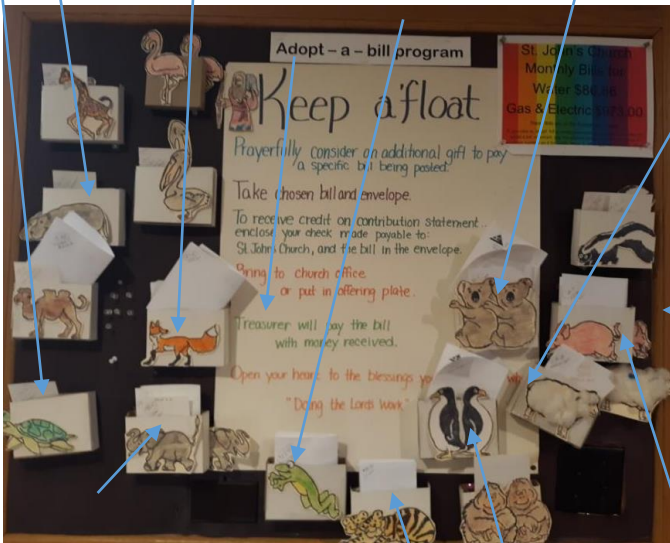 Adopt – a – bill program
St. John's Church
Monthly Bills for
Water $86.86
Gas & Electric
Keep a'float
Prayerfully consider an additional gift to pay
a specific bill being posted.
Take chosen bill and envelope.
To receive credit on contribution statement
enclose your check made payable to:
St. John's Church, and the bill in the envelope.
Bring to church office
or put in offering plate.
Treasurer will pay the bill
with money received.
Open your heart to the blessings
"Doing the Lord's Work"